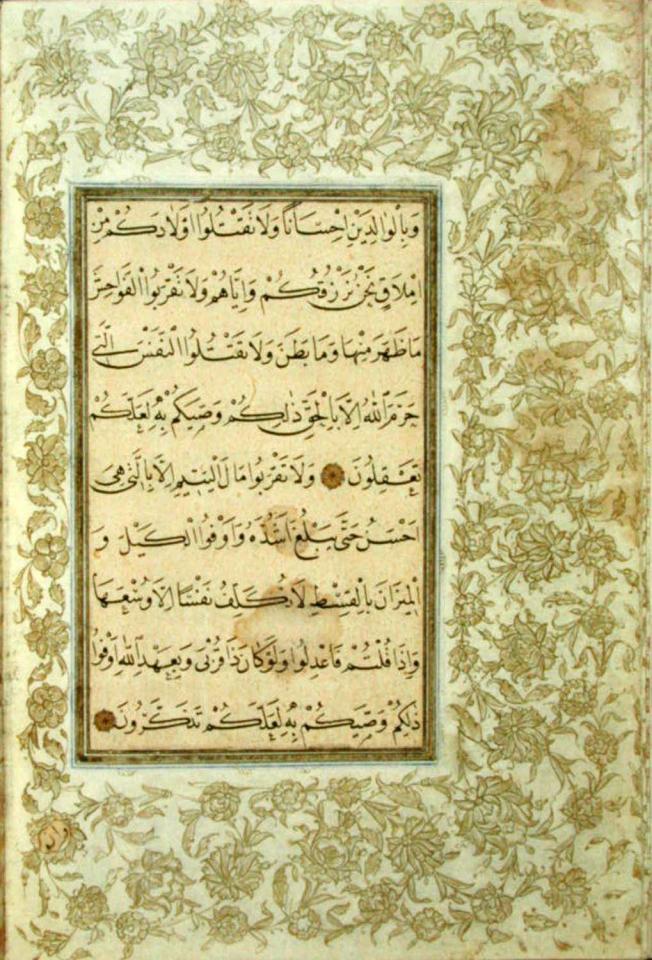 وَبِالْوَالِدَيْنِ اِحْسَانًا وَلَا تَقْتُلُوا اَوْلَادَكُمْ مِنْ
اِمْلَاقٍ نَحْنُ نَرْزُقُكُمْ وَاِيَّاهُمْ وَلَا تَقْرَبُوا الْفَوَاحِشَ
مَا ظَهَرَ مِنْهَا وَمَا بَطَنَ وَلَا تَقْتُلُوا النَّفْسَ الَّتِى
حَرَّمَ اللّٰهُ اِلَّا بِالْحَقِّ ذٰلِكُمْ وَصّٰيكُمْ بِهٖ لَعَلَّكُمْ
تَعْقِلُونَ وَلَا تَقْرَبُوا مَالَ الْيَتِيمِ اِلَّا بِالَّتِى هِىَ
اَحْسَنُ حَتّٰى يَبْلُغَ اَشُدَّهُ وَاَوْفُوا الْكَيْلَ وَ
الْمِيزَانَ بِالْقِسْطِ لَا نُكَلِّفُ نَفْسًا اِلَّا وُسْعَهَا
وَاِذَا قُلْتُمْ فَاعْدِلُوا وَلَوْ كَانَ ذَا قُرْبٰى وَبِعَهْدِ اللّٰهِ اَوْفُوا
ذٰلِكُمْ وَصّٰيكُمْ بِهٖ لَعَلَّكُمْ تَذَكَّرُونَ